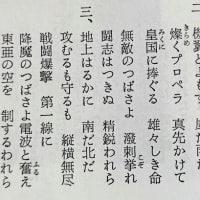 燦くプロペラ 真先かけて
皇国に捧ぐる 雄々しき命
無敵のつばさよ 溌剌挙れ
闘志はつきぬ 精鋭われら
三、地上はるかに 南だ北だ
攻むるも守るも 縦横無尽
戦闘爆撃 第一線に
降魔のつばさよ電波と奮え
東亜の空を 制するわれら